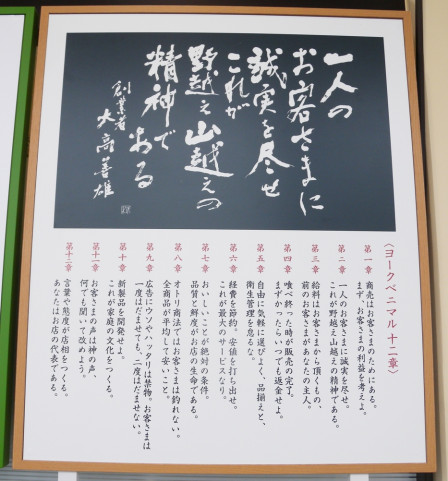 一人の
お客さまに
誠実を尽せ
これが
野越え山越えの
精神で
ある
創業者
大高善雄
〈ヨークベニマル 十二章〉
第一章 商売はお客さまのためにある。
まず、お客さまの利益を考えよ。
第二章 一人のお客さまに誠実を尽せ。
これが野越え山越えの精神である。
第三章 給料はお客さまから頂くもの、
前のお客さまがあなたの主人。
第四章 喰べ終った時が販売の完了。
まずかったらいつでも返金せよ。
第五章 自由に気軽に選びよく、品揃えと、
衛生管理を怠るな。
第六章 経費を節約。安値を打ち出せ。
これが最大のサービスなり。
第七章 おいしいことが絶対の条件。
品質と鮮度がお店の生命である。
第八章 オトリ商法ではお客さまは釣れない。
全商品が平均して安いこと。
第九章 広告にウソやハッタリは禁物。お客さまは
一度はだませても、二度はだませない。
第十章 新製品を開発せよ。
これが家庭の文化をつくる。
第十一章 お客さまの声は神の声、
何でも聞いて改めよう。
第十二章 言葉や態度が店相をつくる。
あなたはお店の代表である。